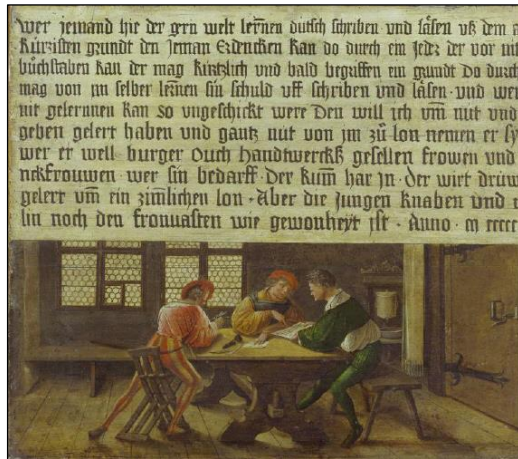 wer jemand hie der gern welt lernen dütsch schriben und läsen uß dem
kürzisten grundt den jeman Erdencken kan do durch ein jeder der vor nit
büchstaben kan der mag kürtzlich und bald begriffen ein grundt do durch
mag von jm selber lernen sin schuld uff schriben und läsen · und wer
nit gelernnen kan so ungeschickt were Den will ich um nüt und
geben gelert haben und gantz nüt von jm zů lon nemen er sy
wer er well burger Ouch handtwerckß gesellen frowen und
nckfrouwen wer sin bedarff · Der kum har jn · der wirt drüw
gelert um ein zimlichen lon · Aber die jungen knaben und
lin noch den fronuasten wie gewonheyt jst · Anno · m ccccc